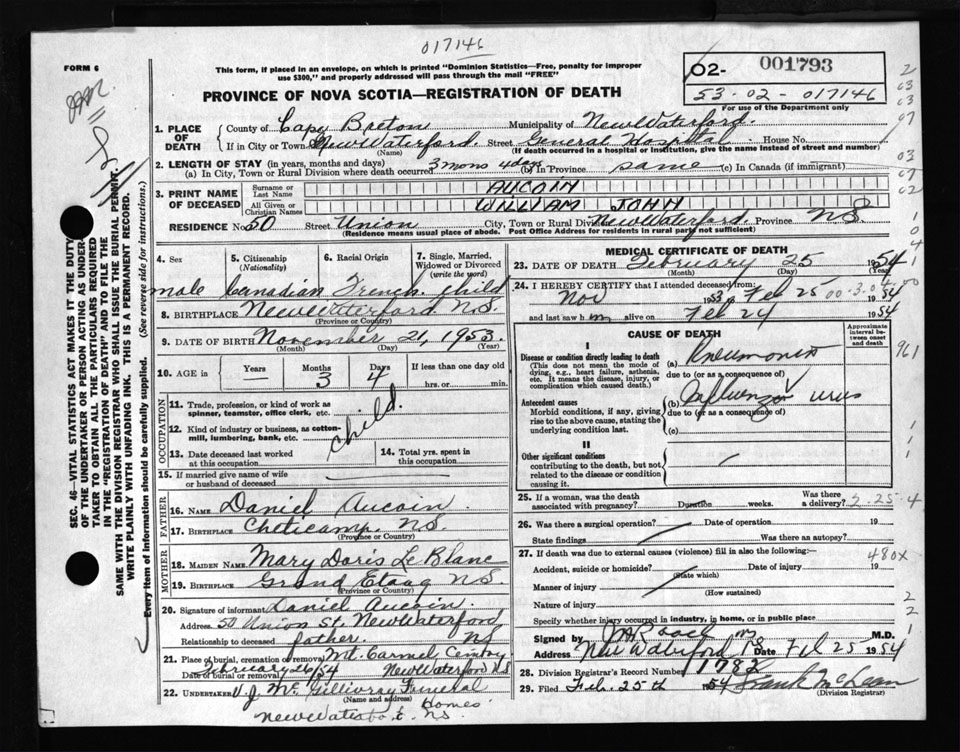 017146
FORM 6
This form, if placed in an envelope, on which is printed "Dominion Statistics—Free, penalty for improper
use $300," and properly addressed will pass through the mail "FREE"
O2- 001793
53-02-017146
For use of the Department only
PROVINCE OF NOVA SCOTIA—REGISTRATION OF DEATH
SEC. 46—VITAL STATISTICS ACT MAKES IT THE DUTY
OF THE UNDERTAKER OR PERSON ACTING AS UNDER-
TAKER TO OBTAIN ALL THE PARTICULARS REQUIRED
IN THE "REGISTRATION OF DEATH" AND TO FILE THE
SAME WITH THE DIVISION REGISTRAR WHO SHALL ISSUE THE BURIAL PERMIT.
WRITE PLAINLY WITH UNFADING INK. THIS IS A PERMANENT RECORD.
Every item of information should be carefully supplied. (See reverse side for instructions.)
1. PLACE OF DEATH
County of Cape Breton Municipality of New Waterford.
If in City or Town New Waterford. Street General Hospital House No.
(Name) (If death occurred in a hospital or institution, give the name instead of street and number)
2. LENGTH OF STAY (in years, months and days)
(a) In City, Town or Rural Division where death occurred 3 mons 4 days (b) In Province same (c) In Canada (if immigrant)
3. PRINT NAME OF DECEASED
Surname or Last Name AUCOIN
All Given or Christian Names WILLIAM JOHN
RESIDENCE No. 50 Street Union City, Town or Rural Div. New Waterford. Province N.S.
(Residence means usual place of abode. Post Office Address for residents in rural party not sufficient)
4. Sex
5. Citizenship (Nationality)
6. Racial Origin
7. Single, Married, Widowed or Divorced (write the word)
male Canadian French child
8. BIRTHPLACE New Waterford N.S.
(Province or Country)
9. DATE OF BIRTH November 21, 1953.
(Month) (Day) (Year)
10. AGE in Years Months Days If less than one day old
— 3 4 hrs. or min.
OCCUPATION
11. Trade, profession, or kind of work as spinner, teamster, office clerk, etc.
child.
12. Kind of industry or business, as cotton-mill, lumbering, bank, etc.
13. Date deceased last worked at this occupation
14. Total yrs. spent in this occupation
15. If married give name of wife or husband of deceased
FATHER
16. NAME Daniel Aucoin
17. BIRTHPLACE Cheticamp. N.S.
(Province or Country)
MOTHER
18. MAIDEN NAME Mary Doris Le Blanc
19. BIRTHPLACE Grand Etang N.S.
(Province or Country)
20. Signature of informant Daniel Aucoin.
Address 50 Union St. New Waterford
Relationship to deceased father. NS
21. Place of burial, cremation or removal Mt. Carmel
February 26/54 New Waterford NS
22. UNDERTAKER V. J. Mc Gillivray Funeral
(Name and address) Homes
New Waterford, NS.
MEDICAL CERTIFICATE OF DEATH
23. DATE OF DEATH February 25 1954
(Month) (Day) (Year)
24. I HEREBY CERTIFY that I attended deceased from:
Nov 1953 to Feb 25 1954
and last saw h im alive on Feb 24 1954
CAUSE OF DEATH
Approximate interval between onset and death
I
Disease or condition directly leading to death
(This does not mean the mode of dying, e.g., heart failure, asthenia, etc. It means the disease, injury, or complication which caused death.)
(a) Pneumonia
due to (or as a consequence of)
Antecedent causes
Morbid conditions, if any, giving rise to the above cause, stating the underlying condition last.
(b) Influenza virus
due to (or as a consequence of)
(c)
II
Other significant conditions
contributing to the death, but not related to the disease or condition causing it.
25. If a woman, was the death associated with pregnancy? Duration weeks. Was there a delivery? 2-25-4
26. Was there a surgical operation? Date of operation 19
State findings Was there an autopsy?
27. If death was due to external causes (violence) fill in also the following:— 480X
Accident, suicide or homicide? Date of injury 19
(State which)
Manner of injury
(How sustained)
Nature of injury
Specify whether injury occurred in industry, in home, or in public place
Signed by M.D.
Address New Waterford NS Date Feb 25 1954
28. Division Registrar's Record Number 1782
29. Filed Feb. 25th 1954 Frank McLean
(Division Registrar)
961